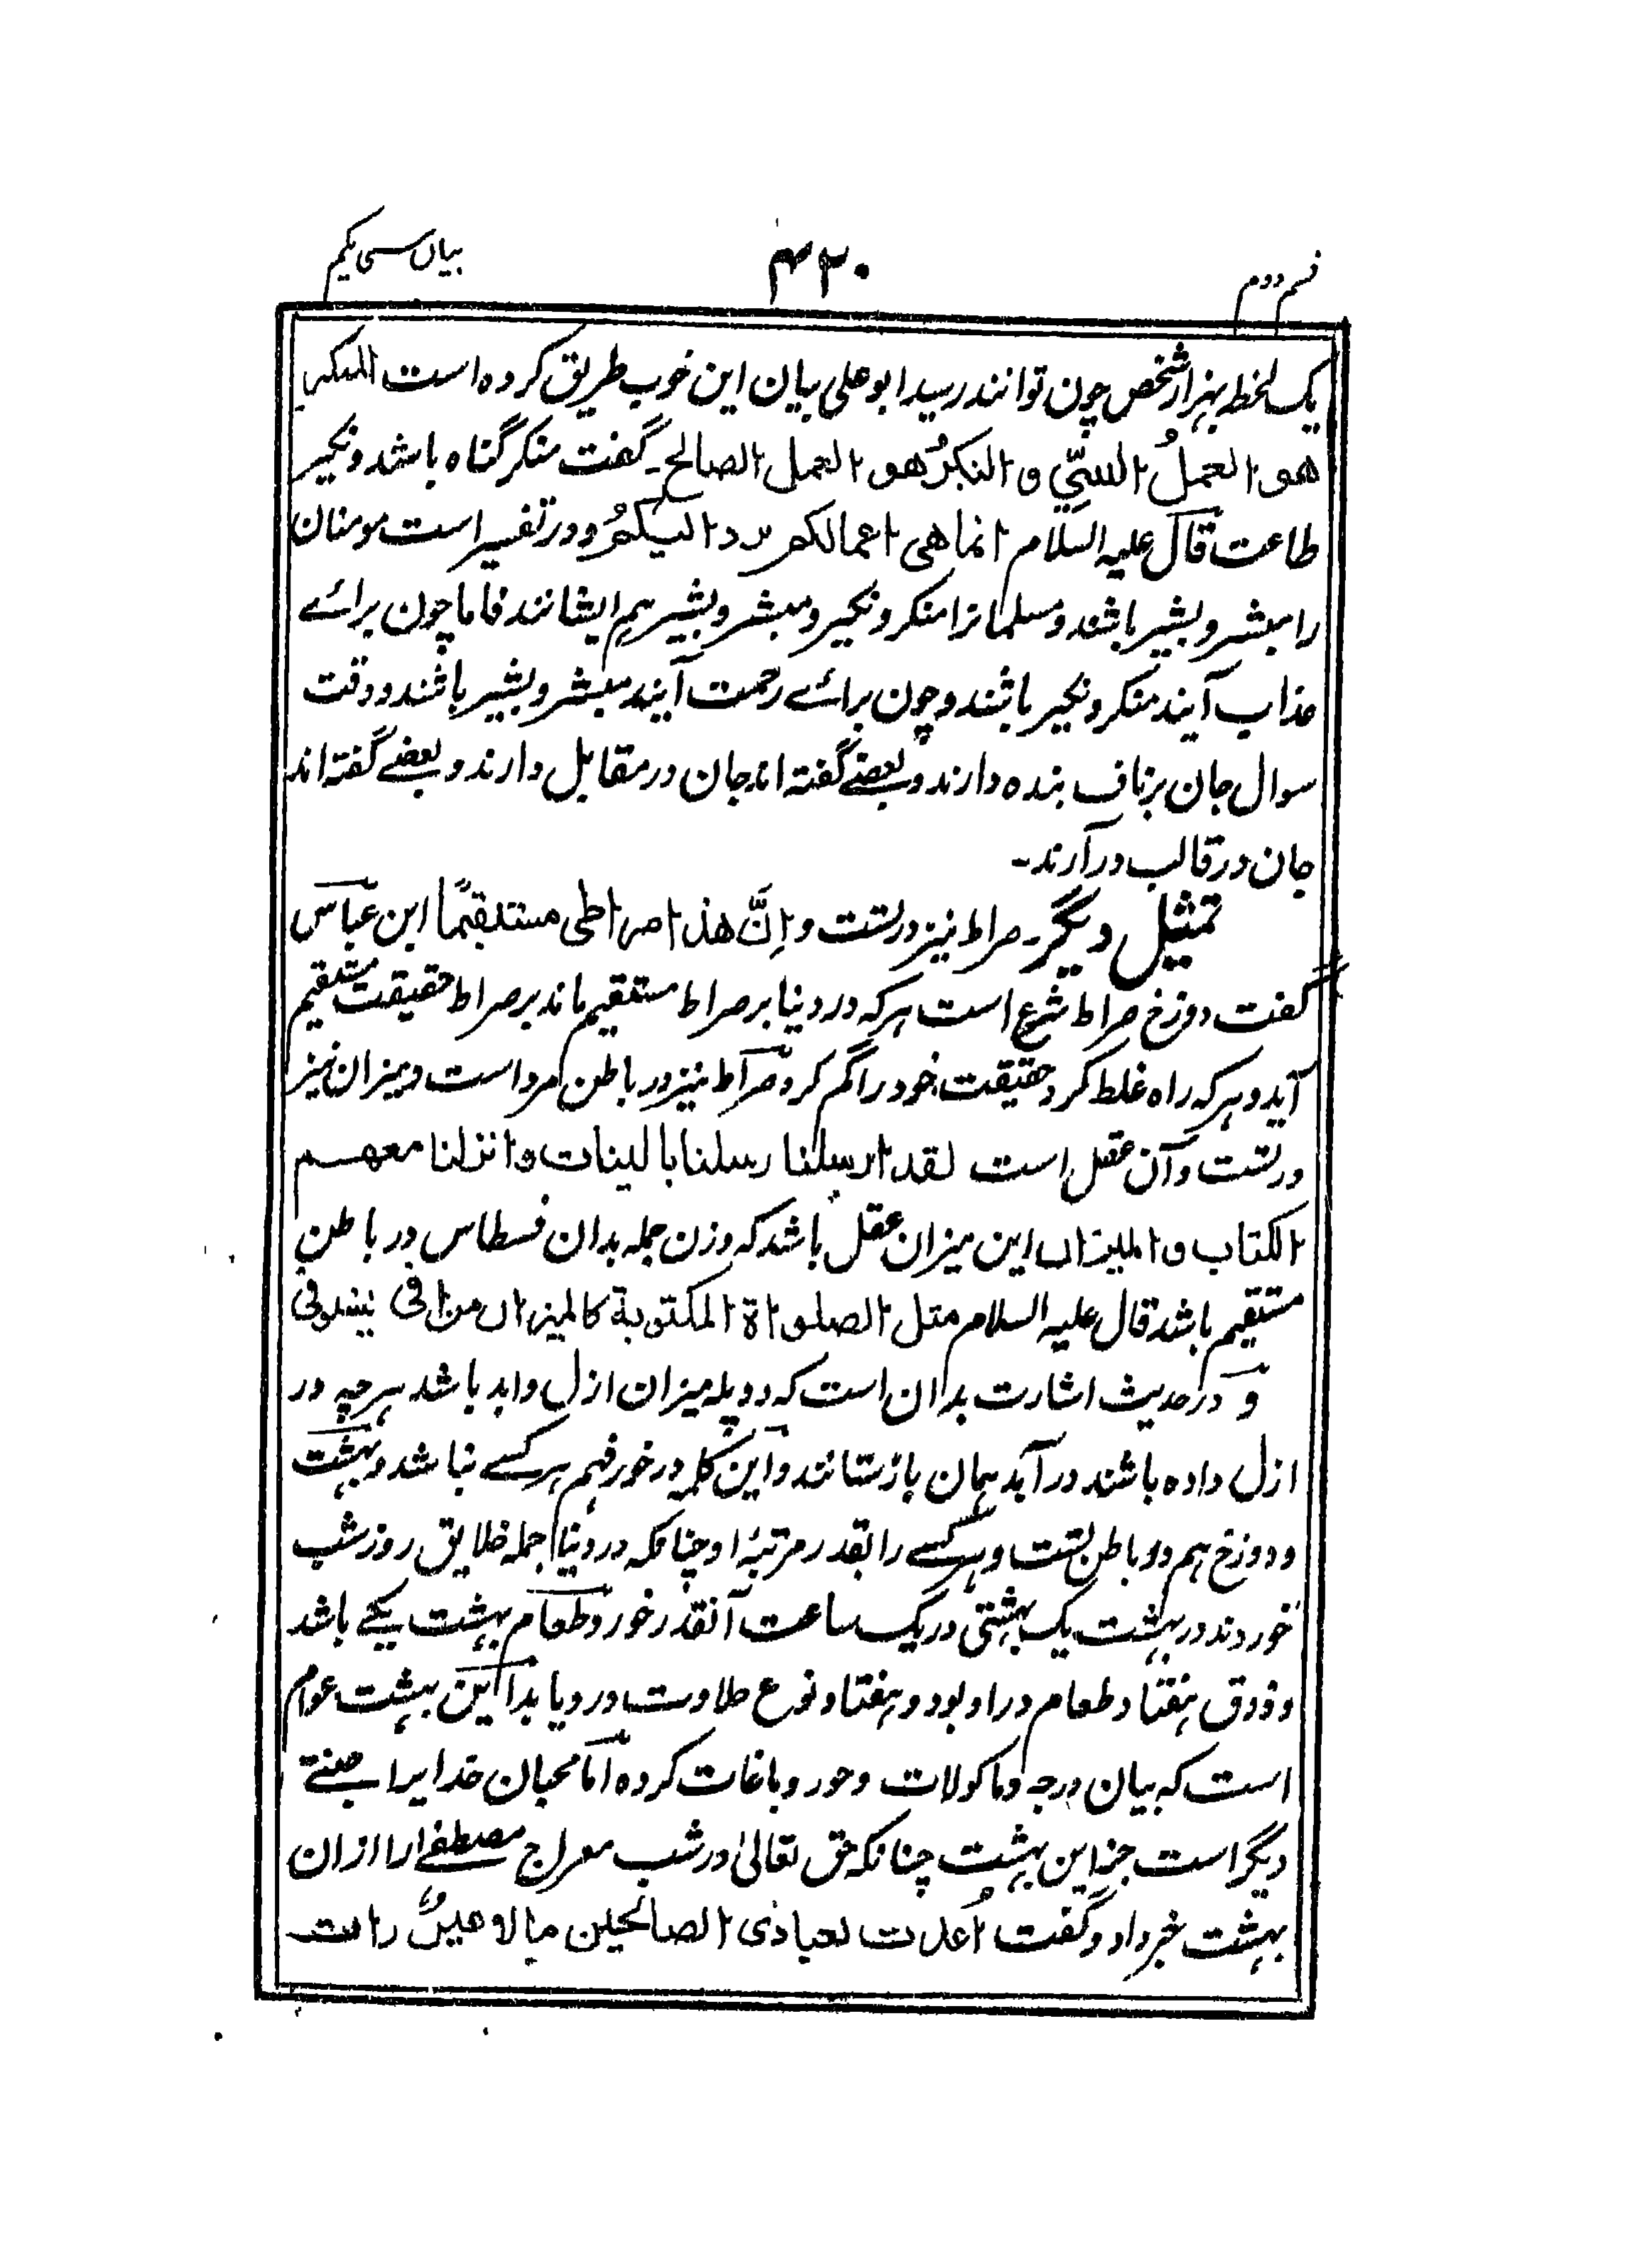 قسم دوم
۴۲۰
بیان سی یکم
یک لحظہ بہزار شخص چون توانند رسید ابو علی بیان این خوب طریق کردہ است المنکر
ھو العملُ السیّئِ و النکیرُ ھو العمل الصالح۔ گفت منکر گناہ باشد و نکیر
طاعت قال علیہ السلام انما ھی اعمالکم ترد الیکمُ و در تفسیر است مومنان
را مبشر و بشیر باشند و مسلمانرا منکر و نکیر و مبشر و بشیر ہم ایشانند فاما چون برائے
عذاب آیند منکر و نکیر باشند و چون برائے رحمت آیند مبشر و بشیر باشند و وقت
سوال جان برناف بندہ دارند و بعضے گفتہ اند جان در مقابل دارند و بعضے گفتہ اند
جان در قالب در آرند۔
تمثیل دیگر۔ صراط نیز در تست و اِنَّ ھذا صراطی مستقیمًا ابن عباس
گفت دوزخ صراط شرع است ہرکہ در دنیا بر صراط مستقیم ماند بر صراط حقیقت مستقیم
آید و ہرکہ راہ غلط کرد حقیقت خود را گم کرد و صراط نیز در باطن مرد است و میزان نیز
در تست و آن عقل است لقد ارسلنا رسلنا بالبینات و انزلنا معھم
الکتاب و المیزان این میزان عقل باشد کہ وزن جملہ بدان قسطاس در باطن
مستقیم باشد قال علیہ السلام مثل الصلواة المکتوبة کالمیزان من اوفی یستوفی
و در حدیث اشارت بدان است کہ دو پلہ میزان ازل و ابد باشد ہرچہ در
ازل دادہ باشند در آبد ہمان بازستانند و این کلمہ در خور فہم ہر کسے نباشد و بہشت
و دوزخ ہم در باطن تست و ہر کسے را بقدر مرتبۂ او چنانکہ در دنیا جملہ خلایق روز شب
خوردند در بہشت یک بہشتی در یک ساعت آنقدر خورد و طعام بہشت یکے باشد
و ذوق ہفتاد طعام در او بود و ہفتاد نوع حلاوت در و یابد این بہشت عوام
است کہ بیان درجہ و ماکولات و حور و باغات کردہ اما محبان خدایرا جنتے
دیگر است جز این بہشت چنانکہ حق تعالیٰ در شب معراج مصطفےٰ را ازان
بہشت خبر داد و گفت اُعدت لعبادی الصالحین ما لا عینٌ رات